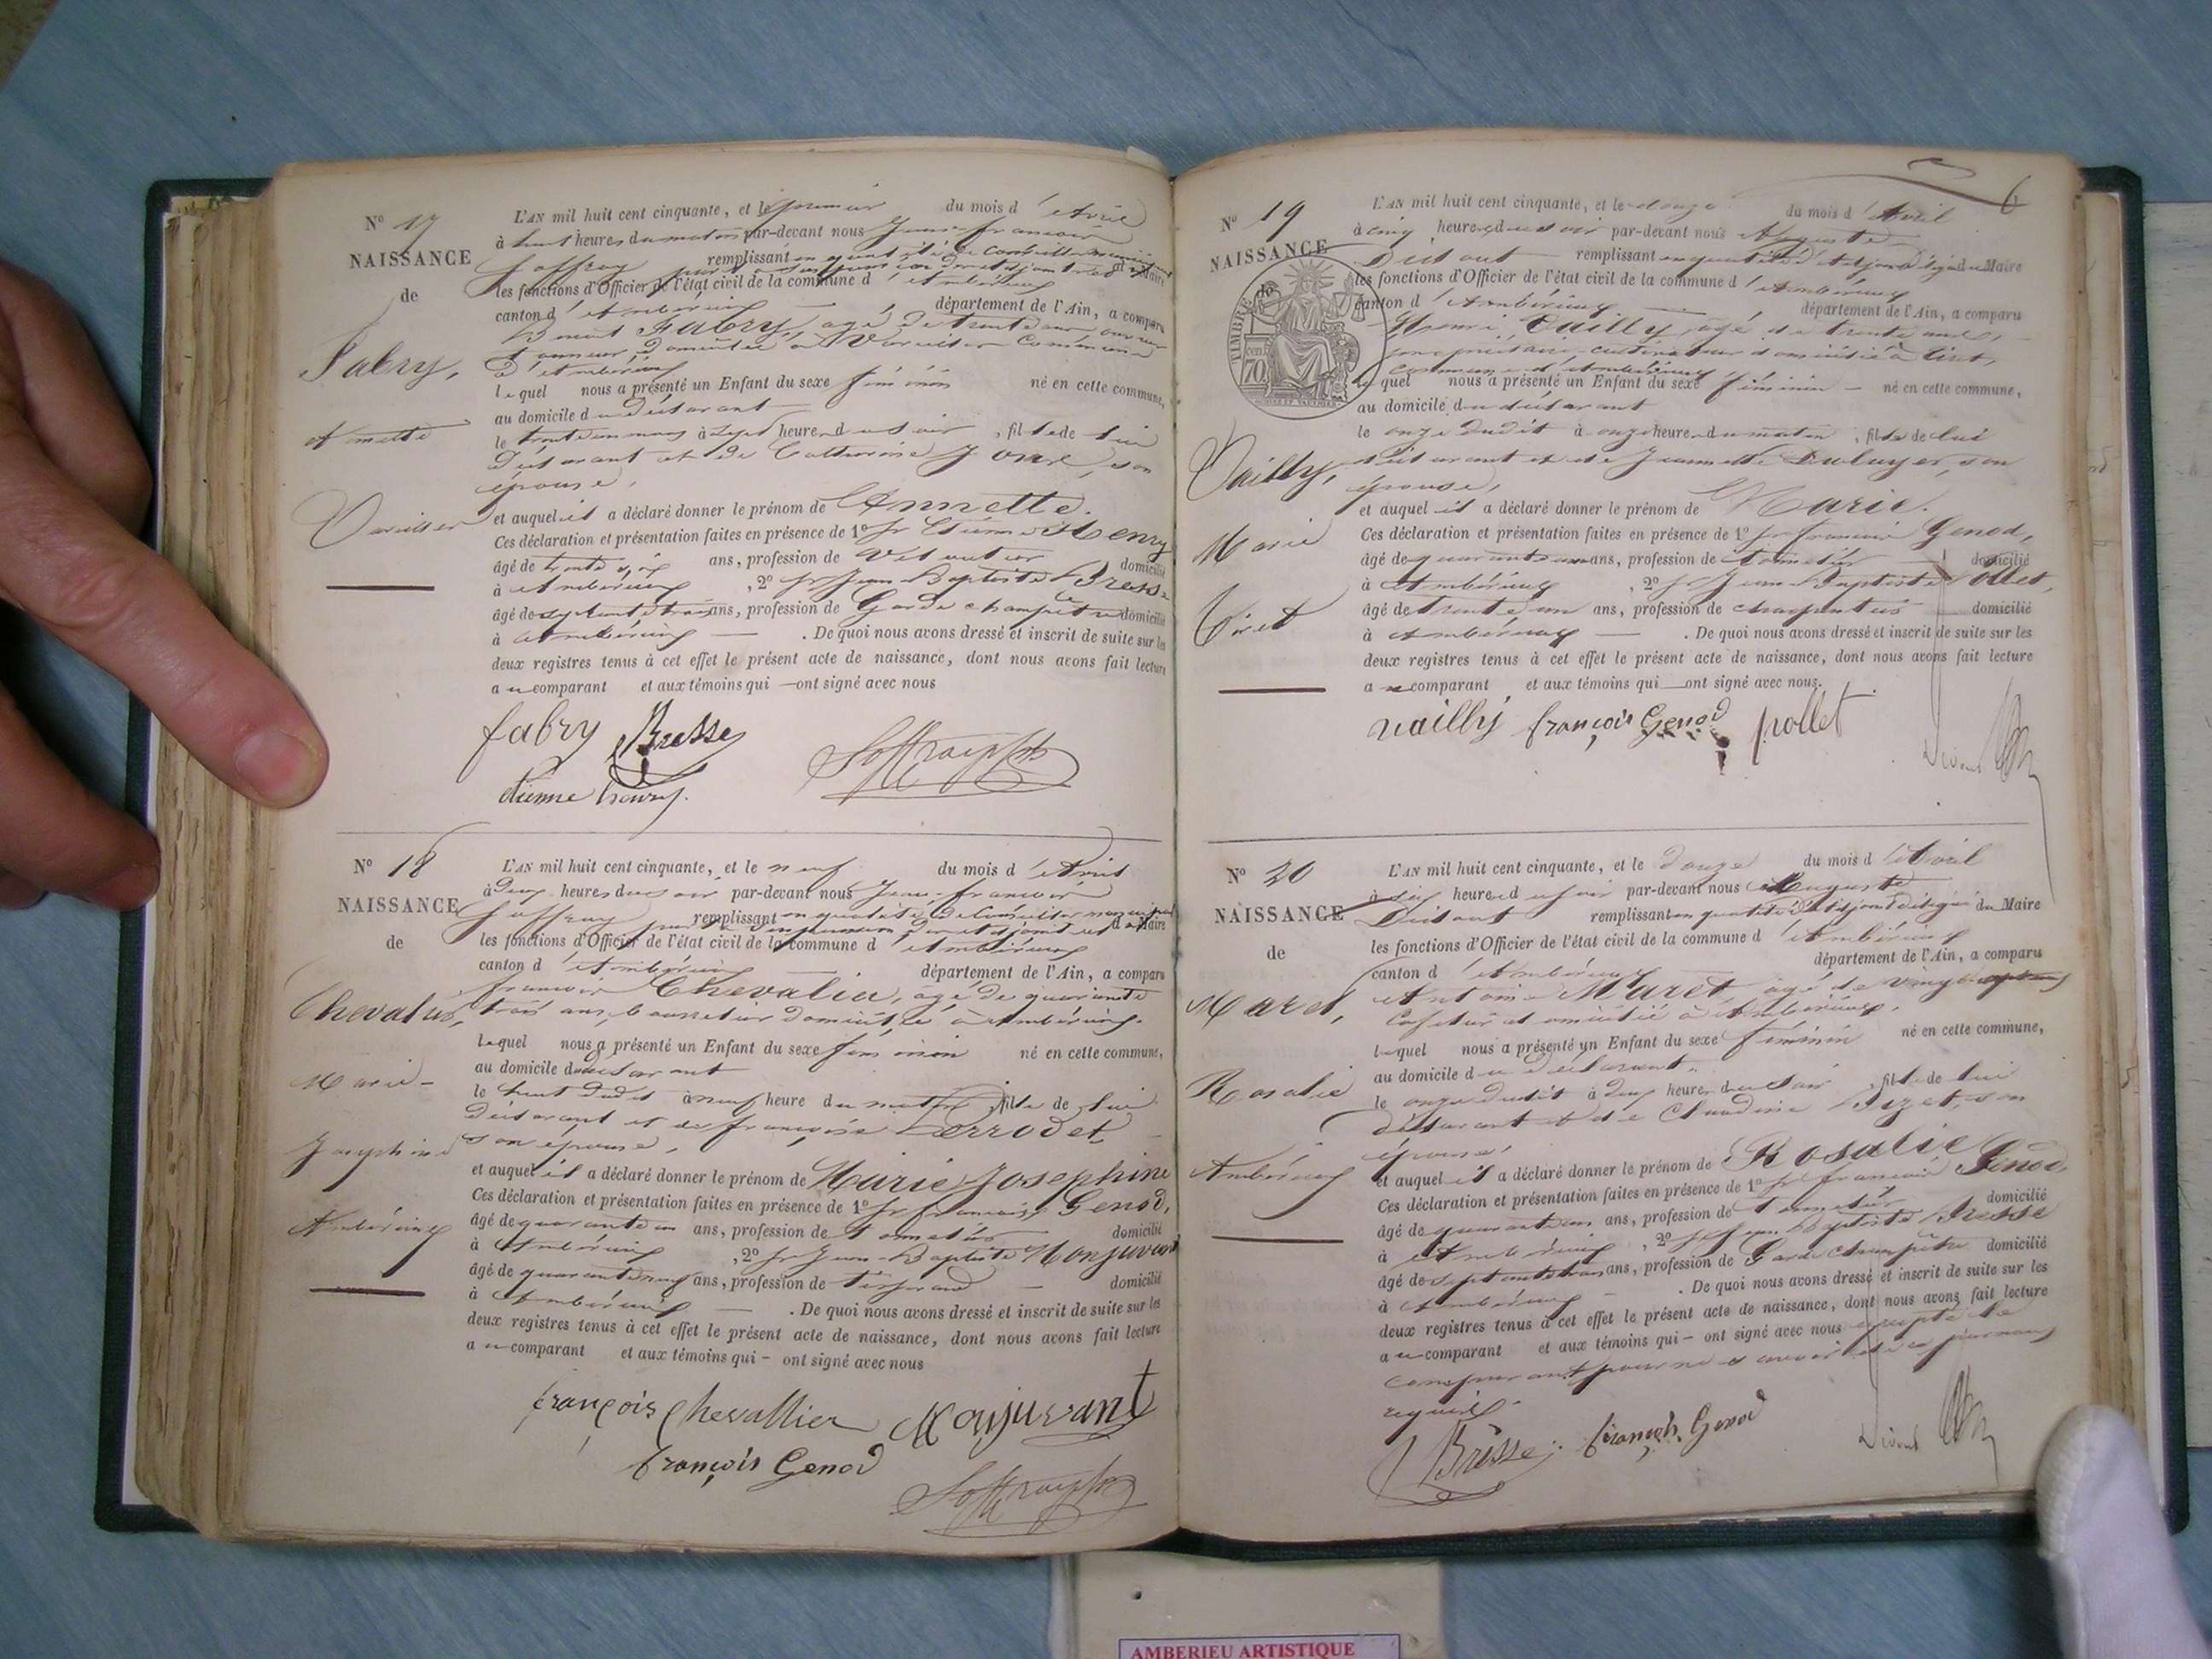 N° 17
NAISSANCE
de
Fabry,
Annette
Vareilles
L'AN mil huit cent cinquante, et le premier du mois d'Avril
à huit heures du matin par-devant nous Jean-françois
remplissant en qualité de Conseiller municipal
les fonctions d'Officier de l'état civil de la commune d'Ambérieux
canton d'Ambérieux département de l'Ain, a comparu
Benoit Fabry, agé de trente ans
domicilié à Vareilles Commune
d'Ambérieux
lequel nous a présenté un Enfant du sexe féminin né en cette commune,
au domicile du déclarant
le trente un mars à sept heures du soir, fille de lui
déclarant et de Catherine son
épouse,
et auquel il a déclaré donner le prénom de Annette.
Ces déclaration et présentation faites en présence de 1° sr Etienne Henry
âgé de trente six ans, profession de domicilié
à Ambérieux, 2° sr Jean-Baptiste Bresse
âgé de septante trois ans, profession de Garde champêtre domicilié
à Ambérieux. De quoi nous avons dressé et inscrit de suite sur les
deux registres tenus à cet effet le présent acte de naissance, dont nous avons fait lecture
au comparant et aux témoins qui ont signé avec nous
fabry Bresse
étienne henry
N° 18
NAISSANCE
de
Chevalier,
Marie-
Joséphine
Ambérieux
L'AN mil huit cent cinquante, et le neuf du mois d'Avril
à deux heures du soir par-devant nous Jean-françois
remplissant en qualité de Conseiller municipal
les fonctions d'Officier de l'état civil de la commune d'Ambérieux
canton d'Ambérieux département de l'Ain, a comparu
françois Chevalier, âgé de quarante
trois ans, domicilié à Ambérieux.
lequel nous a présenté un Enfant du sexe féminin né en cette commune,
au domicile du déclarant
le huit dudit à neuf heure du matin, fille de lui
déclarant et de françoise Perrodet
son épouse,
et auquel il a déclaré donner le prénom de Marie Josephine
Ces déclaration et présentation faites en présence de 1° sr françois Genod,
âgé de quarante un ans, profession de domicilié
à Ambérieux, 2° sr Jean-Baptiste Monjuvant
âgé de quarante neuf ans, profession de tisserand domicilié
à Ambérieux. De quoi nous avons dressé et inscrit de suite sur les
deux registres tenus à cet effet le présent acte de naissance, dont nous avons fait lecture
au comparant et aux témoins qui - ont signé avec nous
françois Chevallier Monjuvant
françois Genod
6
N° 19
NAISSANCE
de
TIMBRE
70
Vailly,
Marie
Tiret
L'AN mil huit cent cinquante, et le douze du mois d'Avril
à cinq heures du soir par-devant nous Auguste
remplissant en qualité d'Adjoint délégué du Maire
les fonctions d'Officier de l'état civil de la commune d'Ambérieux
canton d'Ambérieux département de l'Ain, a comparu
Henri Vailly, âgé de trente ans,
propriétaire cultivateur domicilié à tiret,
commune d'Ambérieux
lequel nous a présenté un Enfant du sexe féminin né en cette commune,
au domicile du déclarant
le onze dudit à onze heures du matin, fille de lui
déclarant et de Jeannette Dulayer, son
épouse,
et auquel il a déclaré donner le prénom de Marie.
Ces déclaration et présentation faites en présence de 1° sr françois Genod,
âgé de quarante un ans, profession de domicilié
à Ambérieux, 2° sr Jean-Baptiste Pollet,
âgé de trente un ans, profession de charpentier domicilié
à Ambérieux. De quoi nous avons dressé et inscrit de suite sur les
deux registres tenus à cet effet le présent acte de naissance, dont nous avons fait lecture
au comparant et aux témoins qui ont signé avec nous.
vailly françois Genod pollet
N° 20
NAISSANCE
de
Maret,
Rosalie
Ambérieux
L'AN mil huit cent cinquante, et le douze du mois d'Avril
à six heures du soir par-devant nous Auguste
remplissant en qualité d'Adjoint délégué du Maire
les fonctions d'Officier de l'état civil de la commune d'Ambérieux
canton d'Ambérieux département de l'Ain, a comparu
Antoine Maret, âgé de vingt sept ans
domicilié à Ambérieux.
lequel nous a présenté un Enfant du sexe féminin né en cette commune,
au domicile du déclarant.
le onze dudit à deux heures du soir, fille de lui
déclarant et de Claudine Bizet, son
épouse,
et auquel il a déclaré donner le prénom de Rosalie
Ces déclaration et présentation faites en présence de 1° sr françois Genod,
âgé de quarante un ans, profession de domicilié
à Ambérieux, 2° sr Jean-Baptiste Bresse
âgé de septante trois ans, profession de Garde champêtre domicilié
à Ambérieux. De quoi nous avons dressé et inscrit de suite sur les
deux registres tenus à cet effet le présent acte de naissance, dont nous avons fait lecture
au comparant et aux témoins qui - ont signé avec nous excepté le
comparant pour ne savoir de ce par nous
requis.
Bresse françois Genod
AMBERIEU ARTISTIQUE